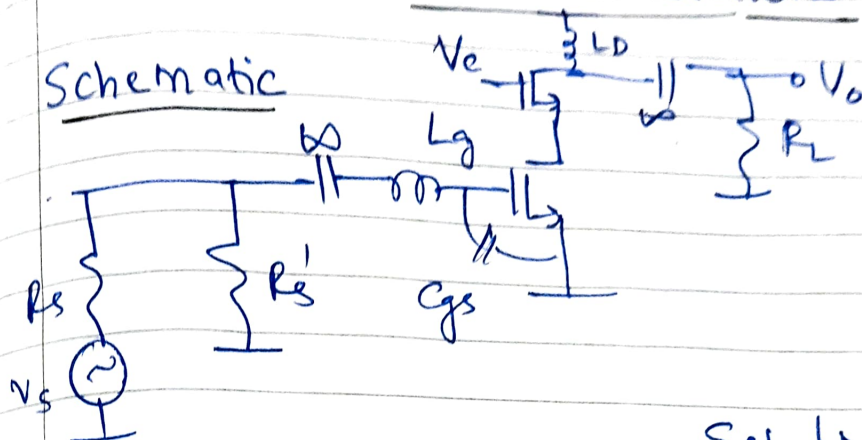 Schematic
Vc
LD
∞
Vo
∞
Lg
RL
Rs
Rs'
Cgs
~
Vs